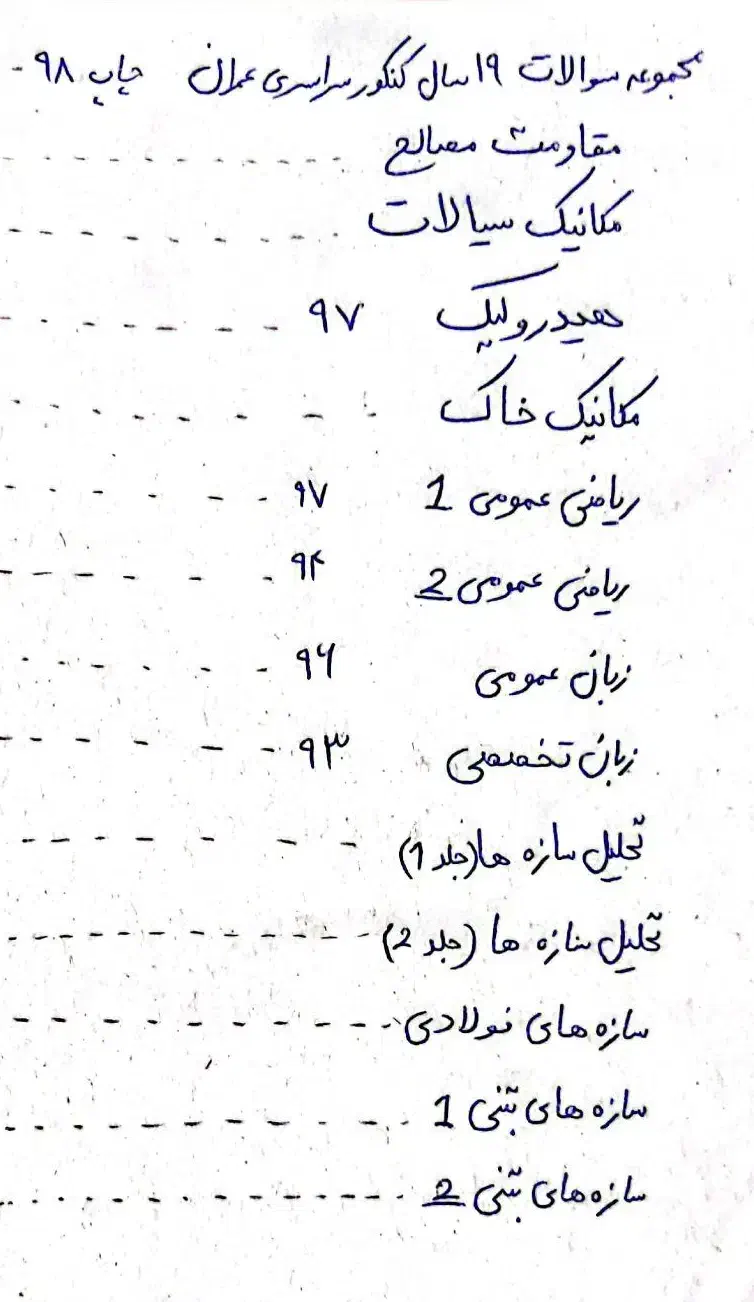 مجموعه سوالات ۱۹ سال کنکور سراسری عمران چاپ ۹۸ -
مقاومت مصالح - - - - - - - - - -
مکانیک سیالات - - - - - - - - -
هیدرولیک ۹۷ - - - - - - - -
مکانیک خاک - - - - - - - - -
ریاضی عمومی 1 ۹۷ - - - - - - -
ریاضی عمومی 2 ۹۴ - - - - - - -
زبان عمومی ۹۶ - - - - - - -
زبان تخصصی ۹۳ - - - - - - -
تحلیل سازه ها (جلد 1) - - - - - - - - -
تحلیل سازه ها (جلد 2) - - - - - - - - - - - - -
سازه های فولادی - - - - - - - - - - -
سازه های بتنی 1 - - - - - - - - - - -
سازه های بتنی 2 - - - - - - - - - - - - -